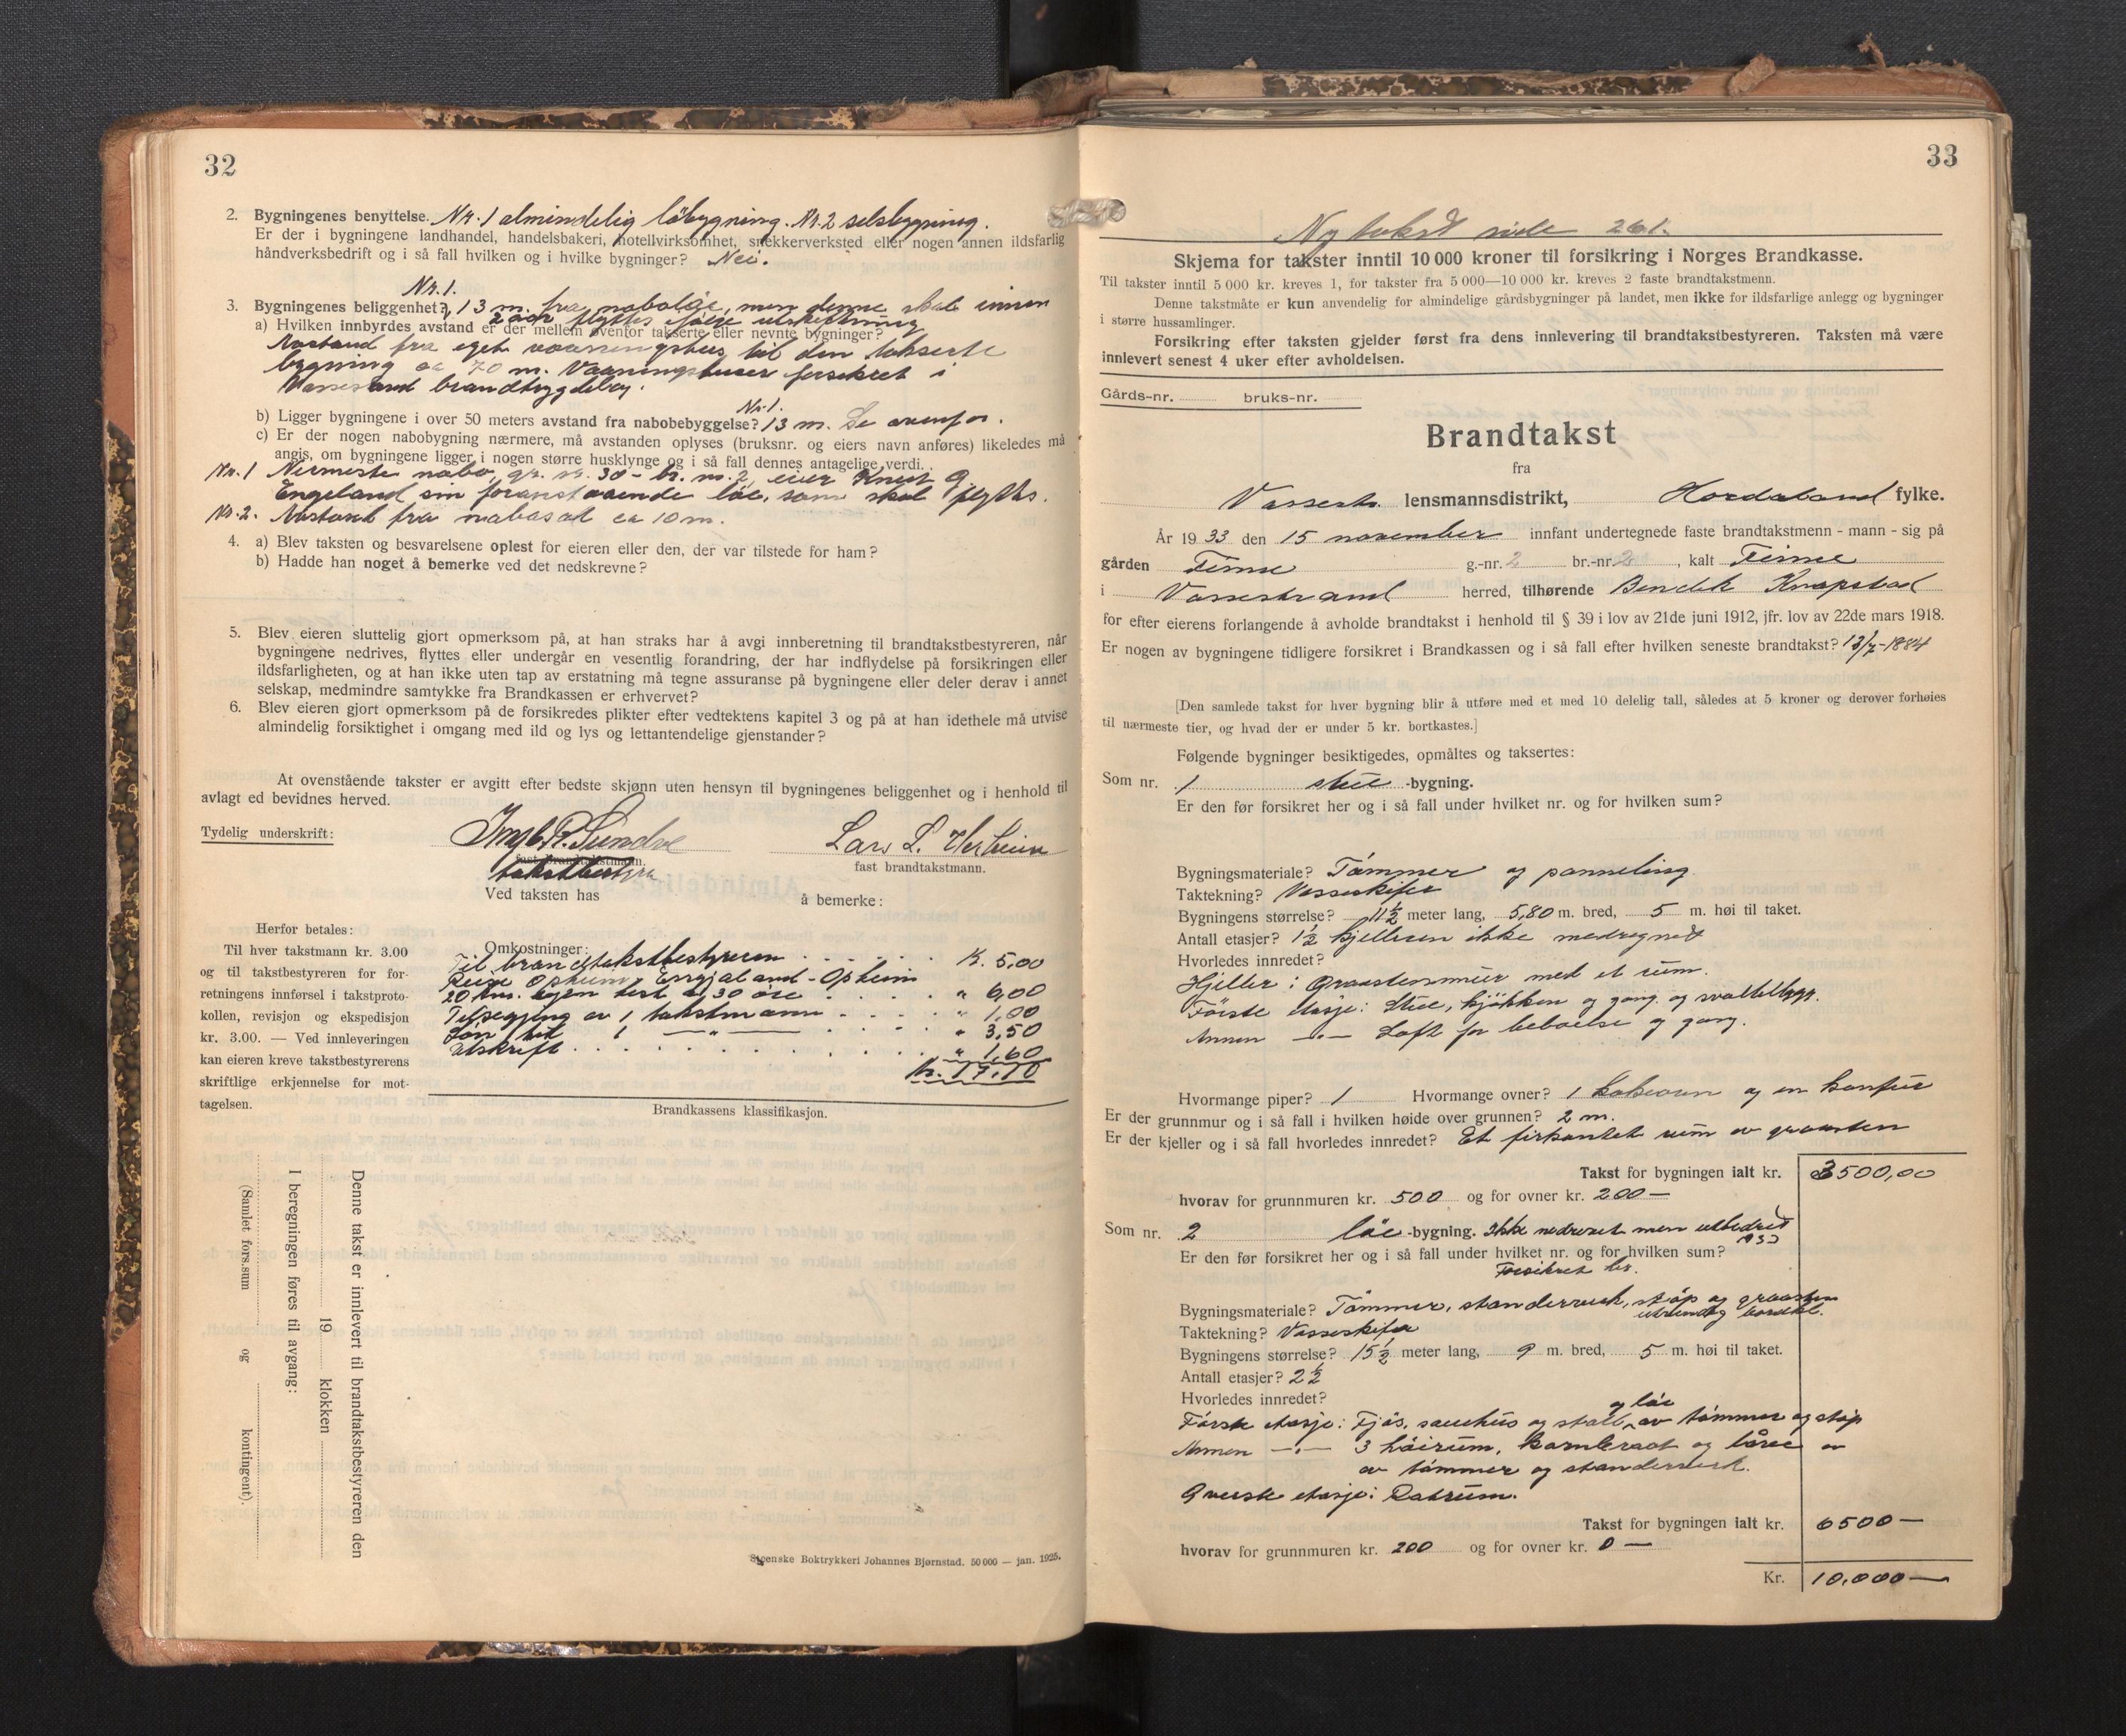 32
2. Bygningenes benyttelse. Nr. 1 almindelig löbygning. Nr. 2 selsbygning.
Er der i bygningene landhandel, handelsbakeri, hotellvirksomhet, snekkerverksted eller nogen annen ildsfarlig
håndverksbedrift og i så fall hvilken og i hvilke bygninger? Nei.
Nr. 1.
3. Bygningenes beliggenhet? 13 m. fra naboløe, men denne skal innen
2 aar flyttes ifølge utskiftning
a) Hvilken innbyrdes avstand er der mellem ovenfor takserte eller nevnte bygninger?
Avstand fra eget vaaningshus til den takserte
bygning ca 70 m. Vaaningshuset forsikret i
Vossestrand brandtrygdelag.
Nr. 1.
b) Ligger bygningene i over 50 meters avstand fra nabobebyggelse? 13 m. Se ovenfor.
c) Er der nogen nabobygning nærmere, må avstanden oplyses (bruksnr. og eiers navn anføres) likeledes må
angis, om bygningene ligger i nogen større husklynge og i så fall dennes antagelige verdi.
Nr. 1 Nermeste nabo, gr. nr. 30 - br. nr. 2, eier Knut G.
Engeland sin foranstaaende løe, som skal flyttes.
Nr. 2. Avstand fra nabosel ca 10 m.
4. a) Blev taksten og besvarelsene oplest for eieren eller den, der var tilstede for ham?
b) Hadde han noget å bemerke ved det nedskrevne?
5. Blev eieren sluttelig gjort opmerksom på, at han straks har å avgi innberetning til brandtakstbestyreren, når
bygningene nedrives, flyttes eller undergår en vesentlig forandring, der har indflydelse på forsikringen eller
ildsfarligheten, og at han ikke uten tap av erstatning må tegne assuranse på bygningene eller deler derav i annet
selskap, medmindre samtykke fra Brandkassen er erhvervet?
6. Blev eieren gjort opmerksom på de forsikredes plikter efter vedtektens kapitel 3 og på at han idethele må utvise
almindelig forsiktighet i omgang med ild og lys og lettantendelige gjenstander?
At ovenstående takster er avgitt efter bedste skjønn uten hensyn til bygningenes beliggenhet og i henhold til
avlagt ed bevidnes herved.
Tydelig underskrift: Ingb. R. Sundve Lars L. Herheim
fast brandtakstmann. fast brandtakstmann.
takstbestyrer
Ved taksten has å bemerke:
Herfor betales:
Til hver takstmann kr. 3.00
og til takstbestyreren for for-
retningens innførsel i takstproto-
kollen, revisjon og ekspedisjon
kr. 3.00. — Ved innleveringen
kan eieren kreve takstbestyrerens
skriftlige erkjennelse for mot-
tagelsen.
Omkostninger:
Til brandtakstbestyreren . . . . . K. 5,00
Reise Opheim, Engjaland - Opheim
20 km. egen hest à 30 öre . . . . " 6,00
Tilsegjing av 1 takstmann . . . . " 1,00
Løn til 1 — " — . . . . " 3,50
Utskrift . . . . . . . . . " 1,60
Kr. 17,10
Brandkassens klassifikasjon.
Denne takst er innlevert til brandtakstbestyreren den
19 klokken
I beregningen føres til avgang:
(Samlet fors.sum og kontingent).
Steenske Boktrykkeri Johannes Bjørnstad. 50 000 — jan. 1925.
33
Ny takst side 261.
Skjema for takster inntil 10 000 kroner til forsikring i Norges Brandkasse.
Til takster inntil 5 000 kr. kreves 1, for takster fra 5 000—10 000 kr. kreves 2 faste brandtakstmenn.
Denne takstmåte er kun anvendelig for almindelige gårdsbygninger på landet, men ikke for ildsfarlige anlegg og bygninger
i større hussamlinger.
Forsikring efter taksten gjelder først fra dens innlevering til brandtakstbestyreren. Taksten må være
innlevert senest 4 uker efter avholdelsen.
Gårds-nr. bruks-nr.
Brandtakst
fra
Vossestr. lensmannsdistrikt, Hordaland fylke.
År 1933 den 15 november innfant undertegnede faste brandtakstmenn - mann - sig på
gården Finne g.-nr. 2 br.-nr. 2, kalt Finne
i Vossestrand herred, tilhørende Bendik Knapstad
for efter eierens forlangende å avholde brandtakst i henhold til § 39 i lov av 21de juni 1912, jfr. lov av 22de mars 1918.
Er nogen av bygningene tidligere forsikret i Brandkassen og i så fall efter hvilken seneste brandtakst? 13/7-1884
[Den samlede takst for hver bygning blir å utføre med et med 10 delelig tall, således at 5 kroner og derover forhøies
til nærmeste tier, og hvad der er under 5 kr. bortkastes.]
Følgende bygninger besiktigedes, opmåltes og taksertes:
Som nr. 1 stue -bygning.
Er den før forsikret her og i så fall under hvilket nr. og for hvilken sum?
Bygningsmateriale? Tömmer og panneling
Taktekning? Vosseskifer
Bygningens størrelse? 11½ meter lang, 5,80 m. bred, 5 m. høi til taket.
Antall etasjer? 1½ kjelleren ikke medregnet
Hvorledes innredet?
Kjeller: Graastensmur med et rum.
Förste etasje: Stue, kjökken og gang og svalltilbygg.
Annen —"— Loft for beboelse og gang.
Hvormange piper? 1 Hvormange ovner? 1 kokeovn og en komfur
Er der grunnmur og i så fall i hvilken høide over grunnen? 2 m.
Er der kjeller og i så fall hvorledes innredet? Et firkantet rum av graasten
Takst for bygningen ialt kr. 3500,00
hvorav for grunnmuren kr. 500 og for ovner kr. 200 —
Som nr. 2 löe -bygning. Ikke nedrevet men utbedret
Er den før forsikret her og i så fall under hvilket nr. og for hvilken sum?
Forsikret her.
Bygningsmateriale? Tömmer, standerverk, stöp og graasten
utvendig bordkl.
Taktekning? Vosseskifer
Bygningens størrelse? 15½ meter lang, 9 m. bred, 5 m. høi til taket.
Antall etasjer? 2½
Hvorledes innredet?
og löe
Förste etasje: Fjös, sauehus og stall, av tömmer og stöp
Annen —"— 3 höirum, kornbraat og låve av
av tömmer og standerverk.
Överste etasje: Råtrum.
Takst for bygningen ialt kr. 6500 —
hvorav for grunnmuren kr. 200 og for ovner kr. 0 —
Kr. 10.000 —